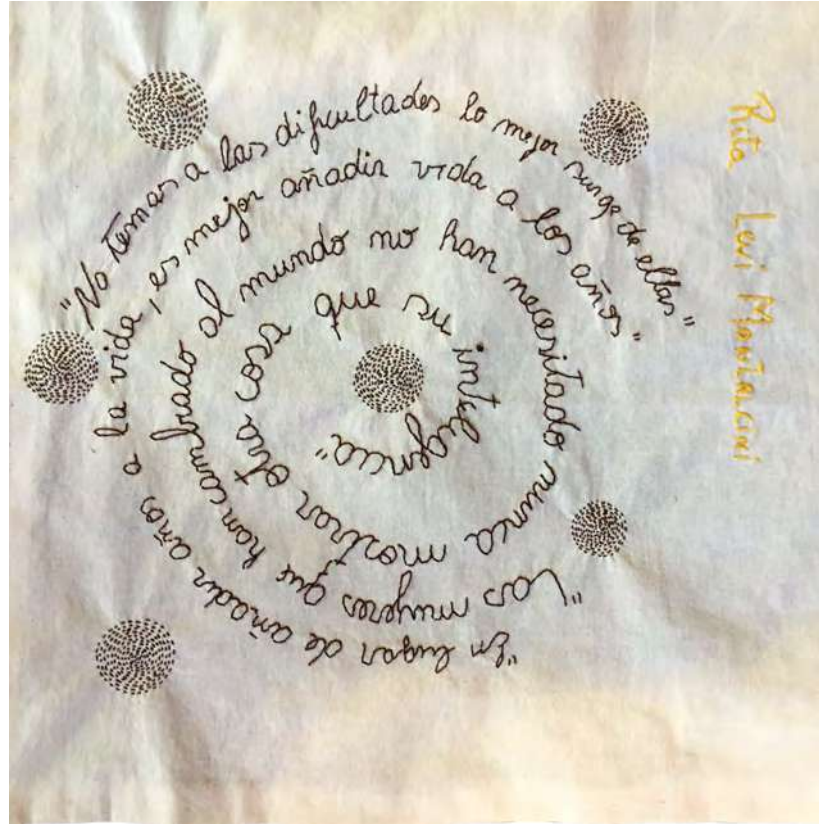 "No temas a las dificultades lo mejor surge de ellas"
"En lugar de añadir años a la vida, es mejor añadir vida a los años"
"Las mujeres que han cambiado al mundo no han necesitado nunca mostrar otra cosa que su inteligencia"
Rita Levi Montalcini